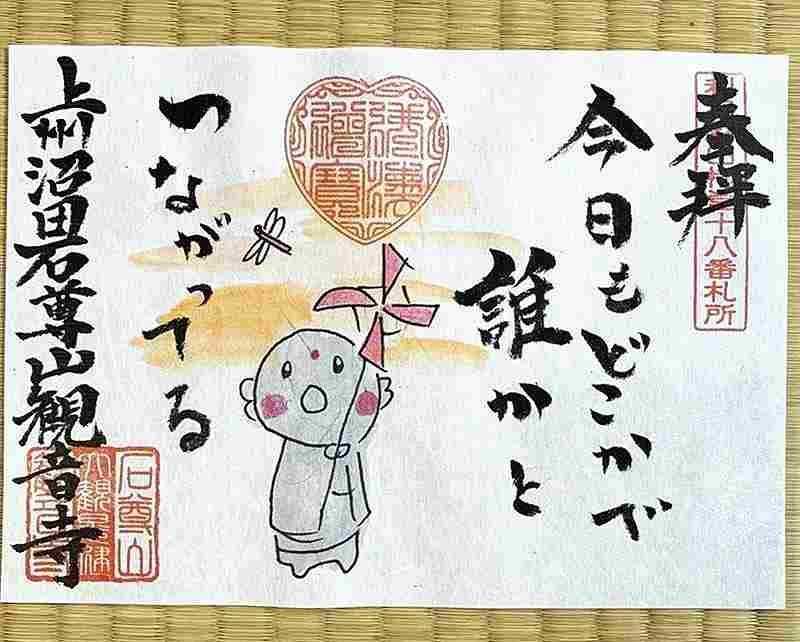 奉拝
十八番札所
今日もどこかで
誰かと
つながってる
上州沼田石尊山観音寺
石尊山